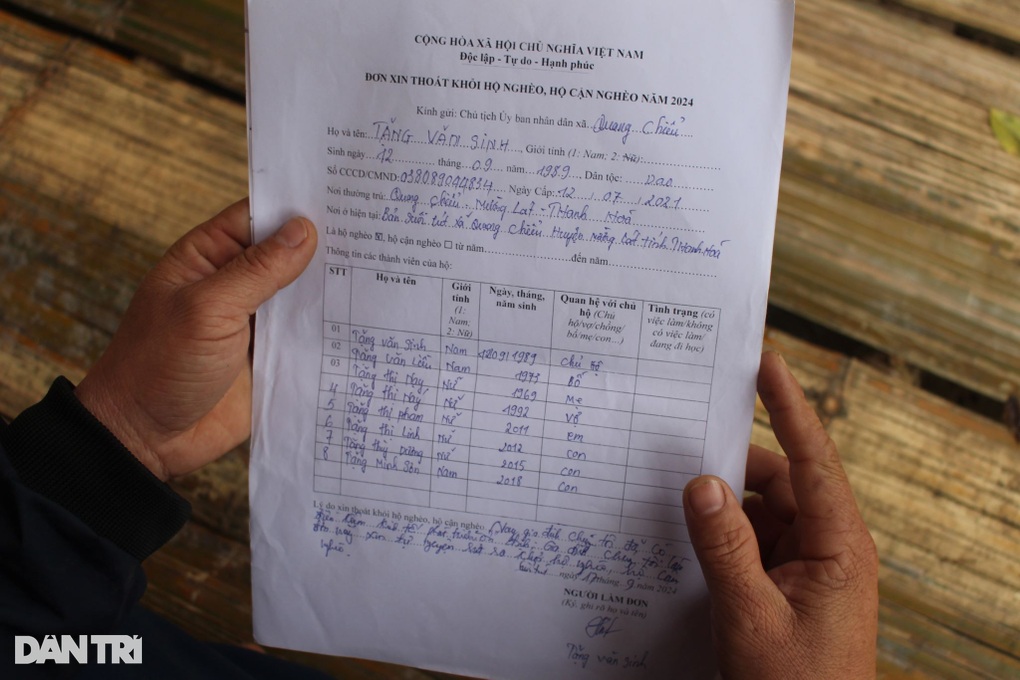 CỘNG HÒA XÃ HỘI CHỦ NGHĨA VIỆT NAM
Độc lập - Tự do - Hạnh phúc
ĐƠN XIN THOÁT KHỎI HỘ NGHÈO, HỘ CẬN NGHÈO NĂM 2024
Kính gửi: Chủ tịch Ủy ban nhân dân xã Quang Chiểu
Họ và tên: TẶNG VĂN SINH Giới tính (1: Nam; 2: Nữ):
Sinh ngày 12 tháng 09 năm 1989, Dân tộc: Dao
Số CCCD/CMND: 038089044834 Ngày Cấp: 12 / 07 / 2021
Nơi thường trú: Quang Chiểu - Mường Lát - Thanh Hoá
Nơi ở hiện tại: Bản Suối tút xã Quang Chiểu Huyện Mường Lát tỉnh Thanh Hoá
Là hộ nghèo ☒, hộ cận nghèo ☐ từ năm đến năm
Thông tin các thành viên của hộ:
STT Họ và tên Giới tính (1: Nam; 2: Nữ) Ngày, tháng, năm sinh Quan hệ với chủ hộ (Chủ hộ/vợ/chồng/bố/mẹ/con...) Tình trạng (có việc làm/không có việc làm/đang đi học)
01 Tặng văn Sinh Nam 12/09/1989 Chủ hộ
02 Tặng văn Nam 1973 Bố
03 Tặng thị Nữ 1969 Mẹ
4 Tặng thị Nữ 1992 Vợ
5 Tặng thị Phạm Nữ 2011 em
6 Tặng thị Linh Nữ 2012 con
7 Tặng thùy Dương Nữ 2015 con
8 Tặng Minh Nam 2018 con
Lý do xin thoát khỏi hộ nghèo, hộ cận nghèo Nay gia đình chúng tôi đã có
phát triển ổn Gia đình chúng tôi
nay xin tự nguyện ra khỏi hộ nghèo, hộ cận
nghèo.
ngày 17 tháng 9 năm 2024
NGƯỜI LÀM ĐƠN
(Ký, ghi rõ họ và tên)
Tặng văn Sinh
DÂN TRÍ